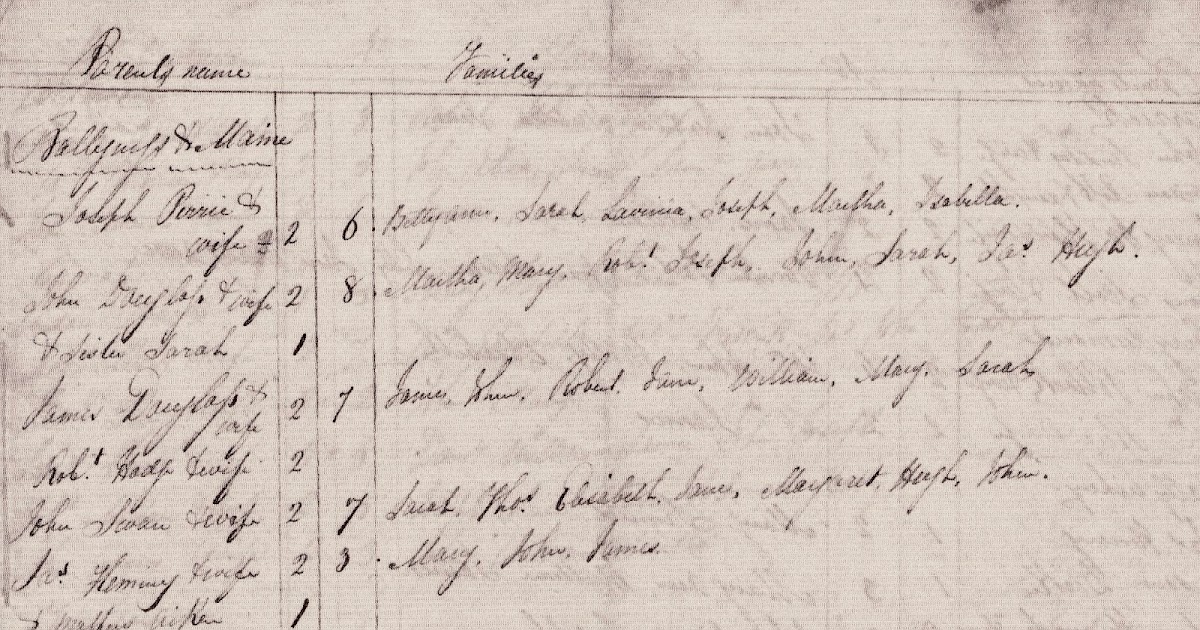 Parents name Families
& Maine
Joseph Pirrie &
wife 2 6 Bettyann, Sarah, Lavinia, Joseph, Martha, Isabella.
John Douglass & wife 2 8 Martha, Mary, Robt Joseph, John, Sarah, Jas Hugh.
& Sister Sarah 1
James Douglass &
wife 2 7 James, John, Robert, Jane, William, Mary, Sarah
Robt Hodge & wife 2
John Swan & wife 2 7 Sarah, Thos Elisabeth, James, Margaret, Hugh, John.
Jas Fleming & wife 2 3 Mary, John, James
1